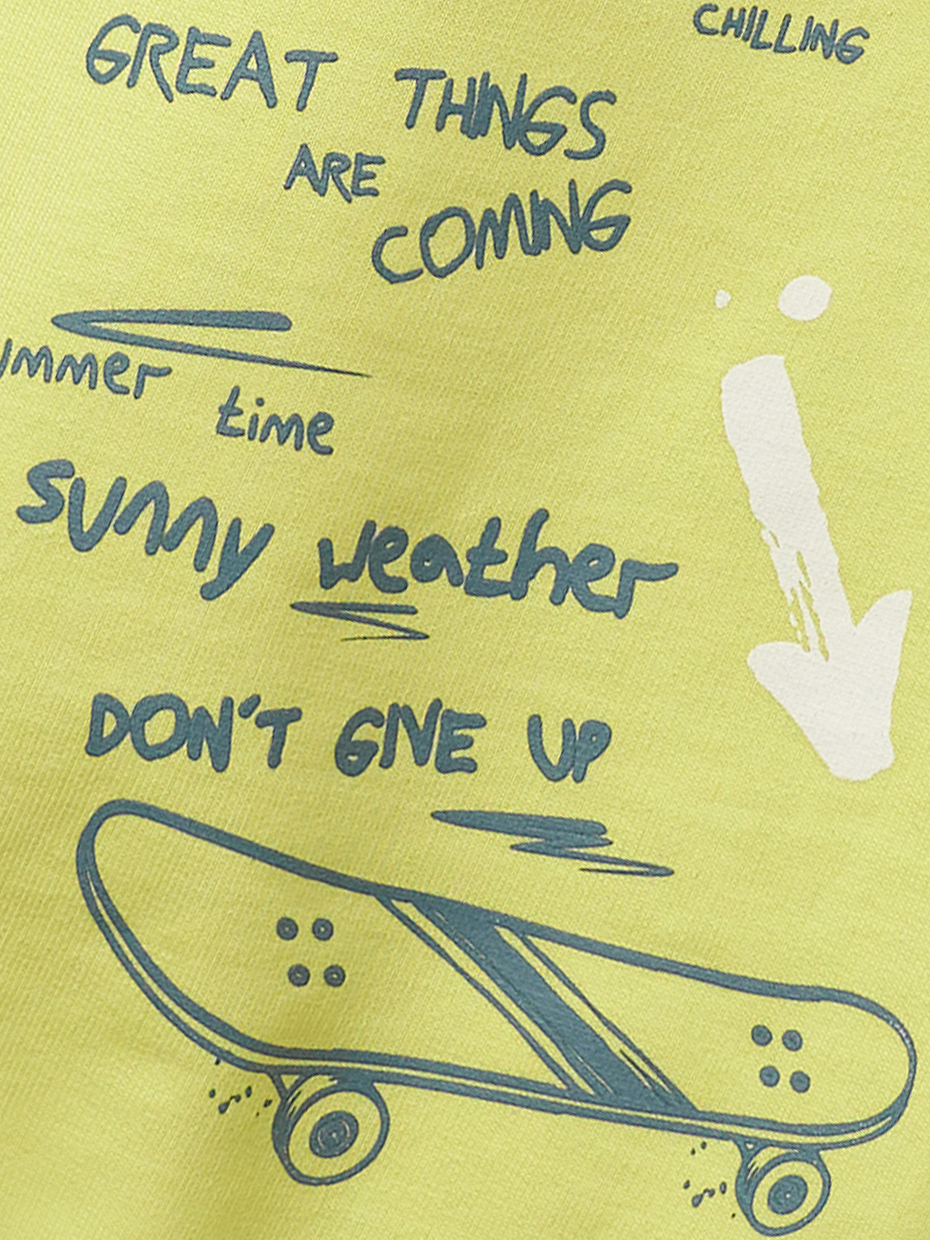 CHILLING
GREAT THINGS
ARE
COMING
ummer time
sunny weather
DON'T GIVE UP